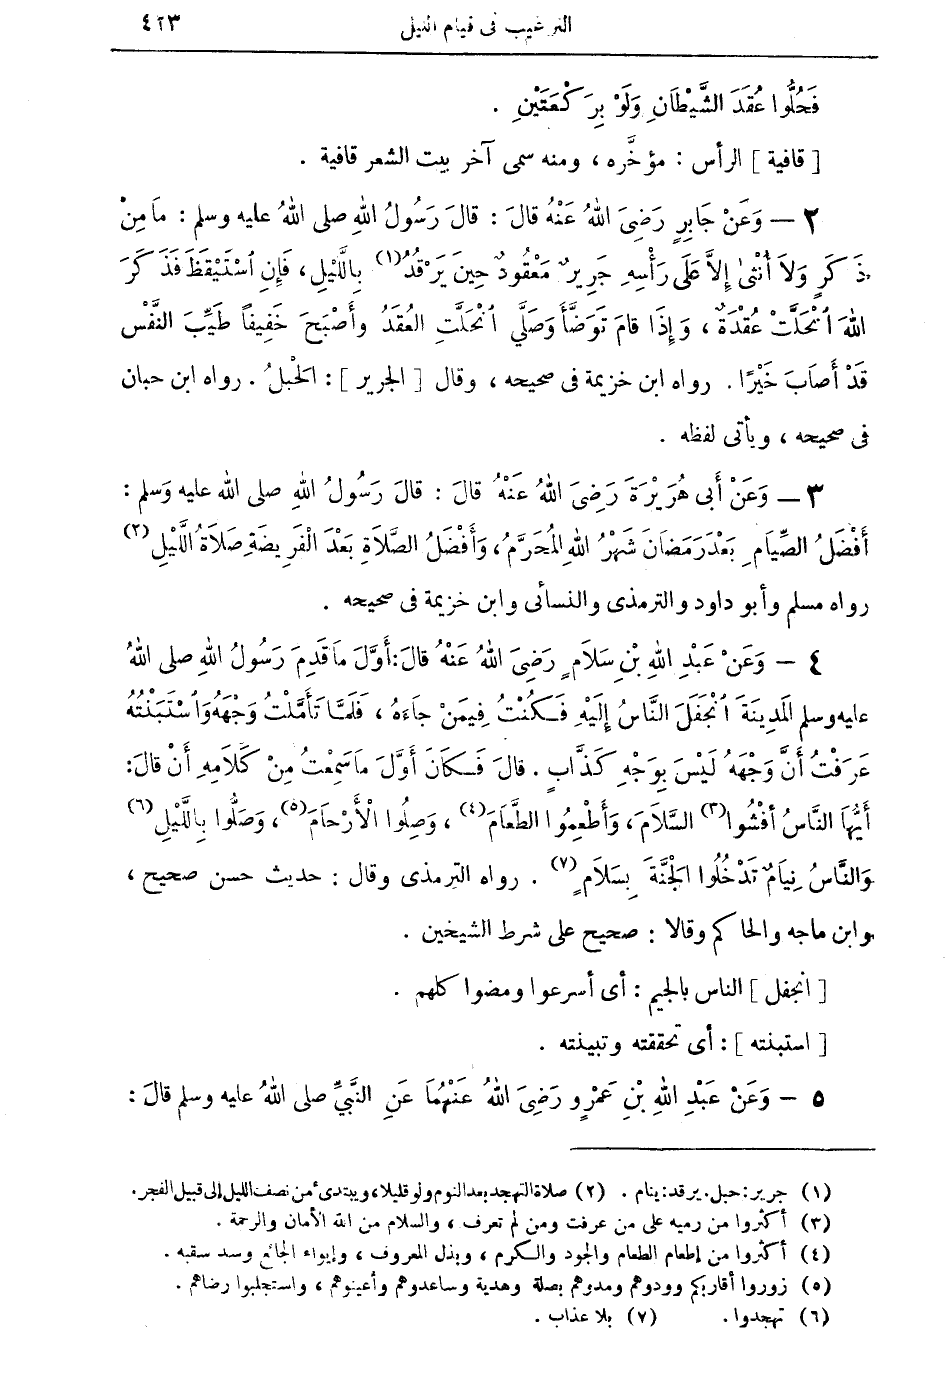 الترغيب فى قيام الليل ٤٢٣
فَحُلُّوا عُقَدَ الشَّيْطَانِ وَلَوْ بِرَكْعَتَيْنِ .
[ قافية ] الرأس : مؤخَّره ، ومنه سمى آخر بيت الشعر قافية .
٢ — وَعَنْ جَابِرٍ رَضِىَ اللهُ عَنْهُ قالَ : قالَ رَسُولُ اللهِ صلى اللهُ عليه وسلم : مَا مِنْ
ذَكَرٍ وَلاَ أُنْثىٰ إِلاَّ عَلَى رَأْسِهِ جَرِيرٌ مَعْقُودٌ حِينَ يَرْقُدُ(١) بِاللَّيْلِ ، فَإِنِ ٱسْتَيْقَظَ فَذَكَرَ
اللهَ ٱنْحَلَّتْ عُقْدَةٌ ، وَإِذَا قامَ تَوَضَّأَ وَصَلَّى ٱنْحَلَّتِ العُقَدُ وأَصْبَحَ خَفِيفاً طَيِّبَ النَّفْسِ
قَدْ أَصَابَ خَيْرًا . رواه ابن خزيمة فى صحيحه ، وقال [ الجرير ] : الحَبْلُ . رواه ابن حبان
فى صحيحه ، ويأتى لفظه .
٣ — وَعَنْ أَبِى هُرَيْرَةَ رَضِىَ اللهُ عَنْهُ قالَ : قالَ رَسُولُ اللهِ صلى الله عليه وَسلم :
أَفْضَلُ الصِّيَامِ بَعْدَ رَمَضَانَ شَهْرُ اللهِ المُحَرَّمُ ، وَأَفْضَلُ الصَّلَاةِ بَعْدَ الْفَرِيضَةِ صَلَاةُ اللَّيْلِ(٢)
رواه مسلم وأبو داود والترمذى والنسائى وابن خزيمة فى صحيحه .
٤ — وَعَنْ عَبْدِ اللهِ بْنِ سَلَامٍ رَضِىَ اللهُ عَنْهُ قالَ : أَوَّلَ مَا قَدِمَ رَسُولُ اللهِ صلى اللهُ
عليه وسلم المَدِينَةَ ٱنْجَفَلَ النَّاسُ إِلَيْهِ فَكُنْتُ فِيمَنْ جَاءَهُ ، فَلَمَّا تَأَمَّلْتُ وَجْهَهُ وَاسْتَبَنْتُهُ
عَرَفْتُ أَنَّ وَجْهَهُ لَيْسَ بِوَجْهِ كَذَّابٍ . قالَ فَكَانَ أَوَّلَ مَا سَمِعْتُ مِنْ كَلَامِهِ أَنْ قالَ :
أَيُّهَا النَّاسُ أَفْشُوا(٣) السَّلَامَ ، وَأَطْعِمُوا الطَّعَامَ(٤) ، وَصِلُوا الْأَرْحَامَ(٥) ، وَصَلُّوا بِاللَّيْلِ(٦)
وَالنَّاسُ نِيَامٌ تَدْخُلُوا الجَنَّةَ بِسَلَامٍ(٧) . رواه الترمذى وقال : حديث حسن صحيح ،
وابن ماجه والحاكم وقالا : صحيح على شرط الشيخين .
[ انجفل ] الناس بالجيم : أى أسرعوا ومضوا كلهم .
[ استبنته ] : أى تحققته وتبينته .
٥ — وَعَنْ عَبْدِ اللهِ بْنِ عَمْرٍو رَضِىَ اللهُ عَنْهُمَا عَنِ النَّبِيِّ صلى اللهُ عليه وسلم قالَ :
(١) جرير : حبل . يرقد : ينام . (٢) صلاة التهجد بعد النوم ولو قليلا ، ويبتدىء من نصف الليل إلى قبيل الفجر .
(٣) أكثروا من رميه على من عرفت ومن لم تعرف ، والسلام من الله الأمان والرحمة .
(٤) أكثروا من إطعام الطعام والجود والكرم ، وبذل المعروف ، وإيواء الجائع وسد سغبه .
(٥) زوروا أقاربكم وودوهم ومدوهم بصلة وهدية وساعدوهم وأعينوهم ، واستجلبوا رضاهم .
(٦) تهجدوا . (٧) بلا عذاب .